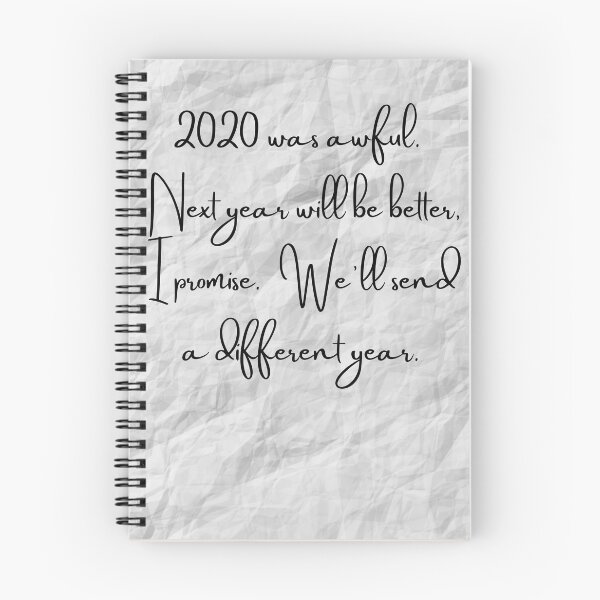 2020 was awful.
Next year will be better,
I promise. We'll send
a different year.